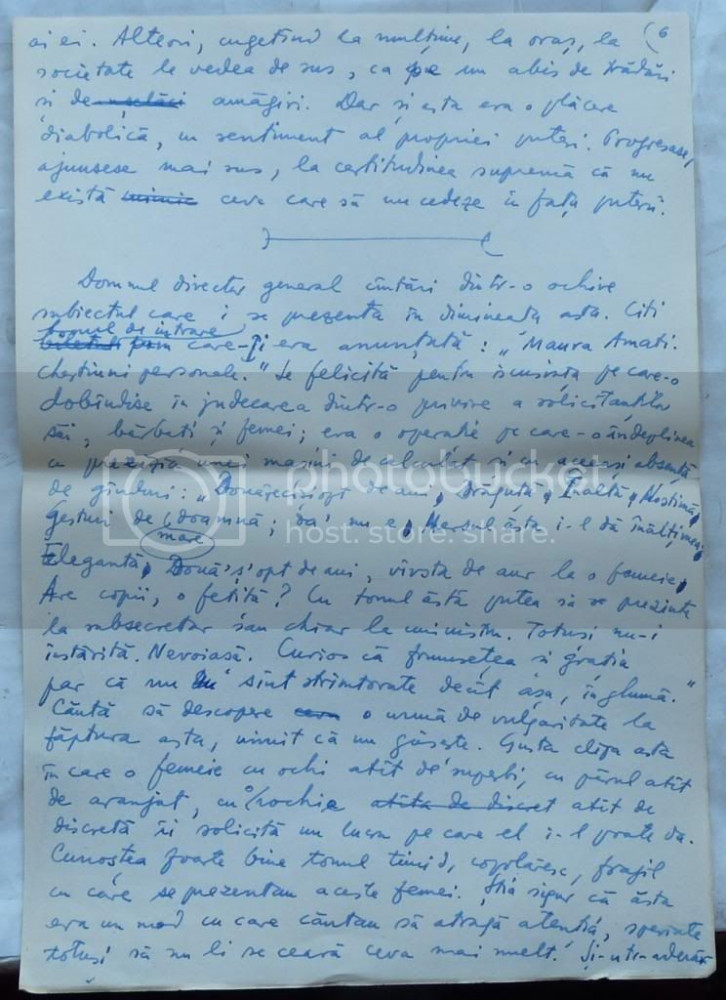 ai ei. Alteori, cugetînd la mulțime, la oraș, la (6
societate le vedea de sus, ca pe un abis de trădări
și de amăgiri. Dar și asta era o plăcere
diabolică, un sentiment al propriei puteri. Progresase,
ajunsese mai sus, la certitudinea supremă că nu
există nimic ceva care să nu cedeze în fața puterii.
Domnul director general cîntări dintr-o ochire
subiectul care i se prezenta în dimineața asta. Citi
bonul de intrare
biletul prin care-i era anunțată: „Maura Amati.
Chestiuni personale." Se felicită pentru iscusința pe care-o
dobîndise în judecarea dintr-o privire a solicitanților
săi, bărbați și femei; era o operație pe care-o îndeplinea
cu precizia unei mașini de calculat și cu aceeași absență
de gînduri: „Douăzecișiopt de ani, Drăguță, Înaltă,
gesturi de doamnă; da' nu e, Mersul ăsta i-l dă înălțimea,
mare
Elegantă, Două'ș'opt de ani, vîrsta de aur la o femeie,
Are copii, o fetiță? Cu tonul ăsta putea să se prezinte
la subsecretar sau chiar la ministru. Totuși nu-i
înstărită. Nevoiasă. Curios că frumusețea și grația
par că nu sînt strîmtorate decît așa, în glumă."
Căută să descopere ceva o urmă de vulgaritate la
făptura asta, uimit că nu găsește. Gusta clipa asta
în care o femeie cu ochi atît de superbi, cu părul atît
de aranjat, cu o rochie atîta de discret atît de
discretă îi solicită un lucru pe care el i-l poate da.
Cunoștea foarte bine tonul timid, copilăresc, fragil
cu care se prezentau aceste femei. Știa sigur că ăsta
era un mod cu care căutau să atragă atenția, speriate
totuși să nu li se ceară ceva mai mult. Și-ntr-adevăr
photobucket
host. store. share.